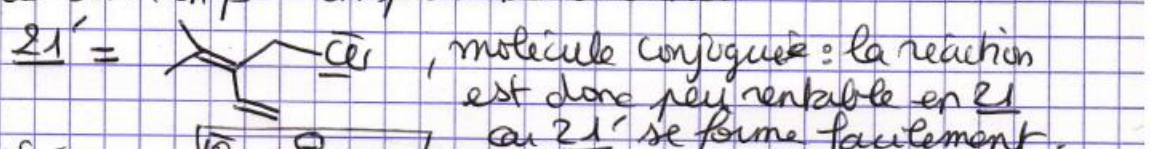 21' = Cl, molécule conjuguée : la réaction
est donc peu rentable en 21
car 21' se forme facilement.